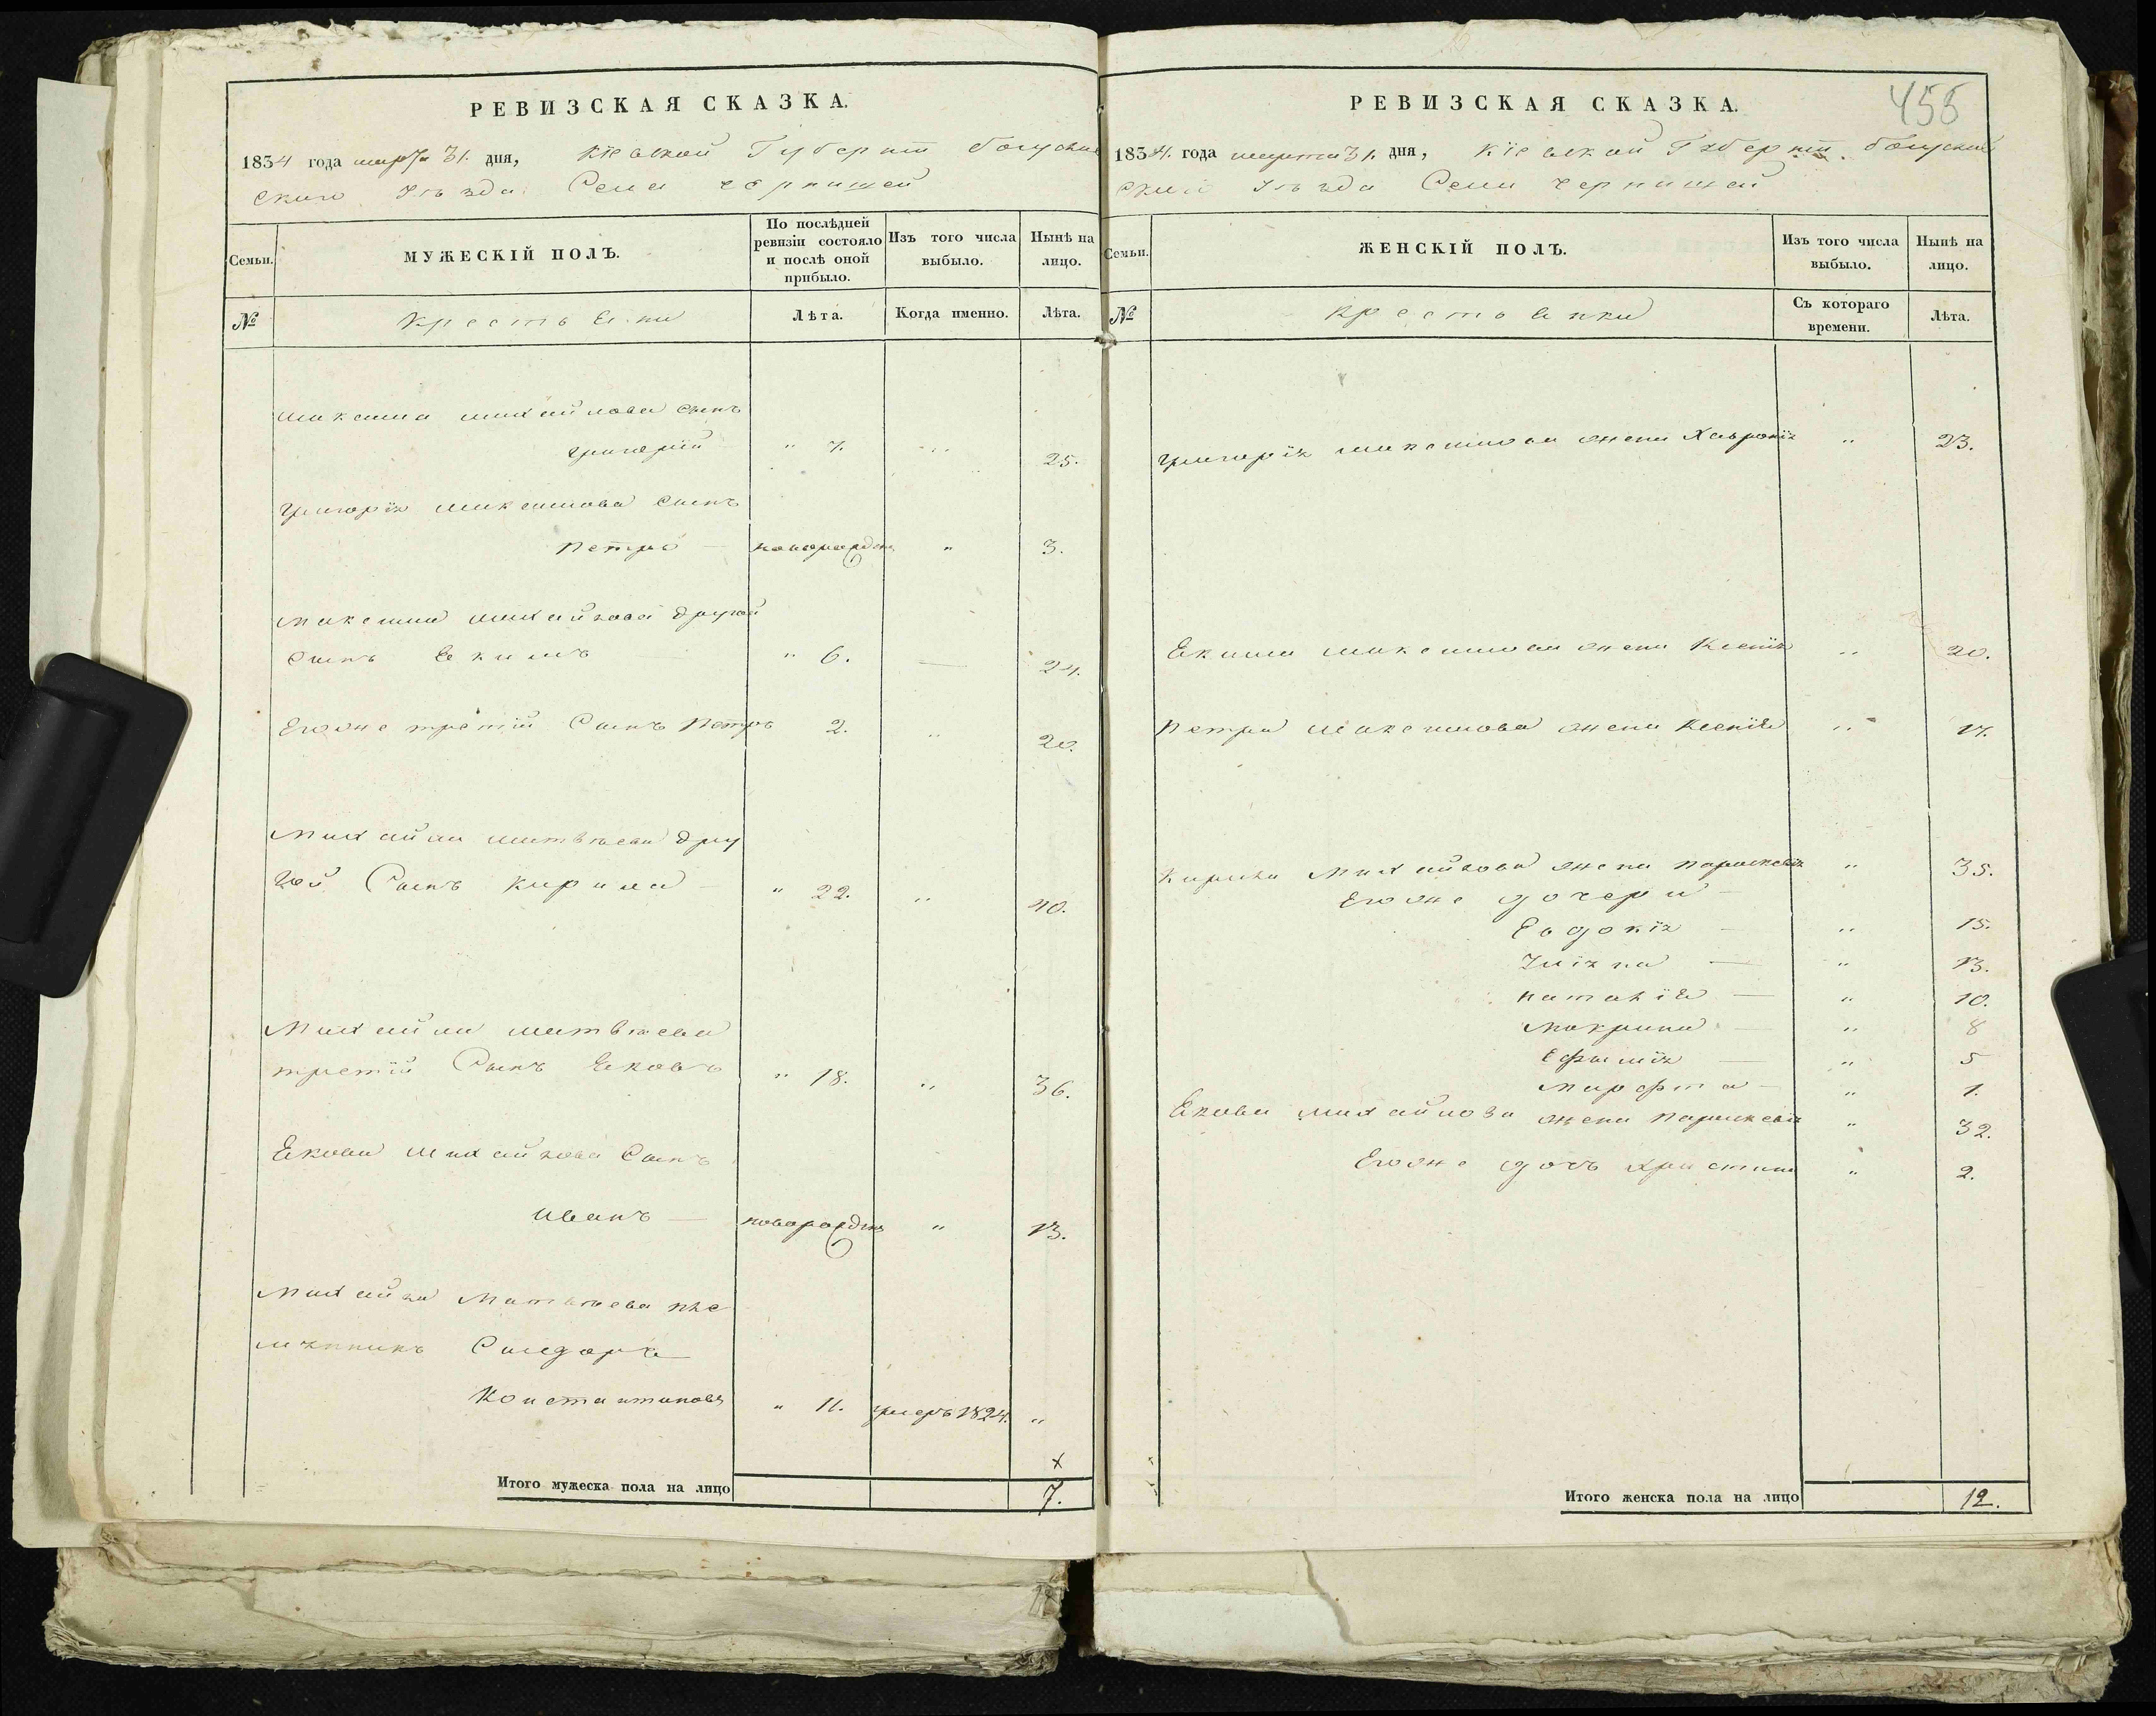 РЕВИЗСКАЯ СКАЗКА.
1834 года марта 31. дня, Кіевской Губерніи Богуслав
скаго Уѣзда Села
Семьи.
МУЖЕСКІЙ ПОЛЪ.
По послѣдней ревизіи состояло и послѣ оной прибыло.
Изъ того числа выбыло.
Нынѣ на лицо.
№
Крестьяни
Лѣта.
Когда именно.
Лѣта.
Микити Михайлова Сынъ
Григорій " 7. " 25.
Григорія Сынъ
Петро — новорожден " 3.
Михайлова другой
Сынъ Екимъ " 6. — 24.
Егоже третій Сынъ Петръ 2. " 20.
Михайла Матвѣева дру
гой Сынъ Кирила — " 22. " 40.
Михайла Матвѣева
третій Сынъ Яковъ " 18. " 36.
Якова Михайлова Сынъ
Иванъ — новорожден " 13.
Михайла Матвѣева пле
мянникъ Сидоръ
Константиновъ " 11. умеръ 1824. "
х
Итого мужеска пола на лицо 7.
455
РЕВИЗСКАЯ СКАЗКА.
1834. года марта 31. дня, Кіевской Губерніи Богуслав
скаго Уѣзда Села
Семьи.
ЖЕНСКІЙ ПОЛЪ.
Изъ того числа выбыло.
Нынѣ на лицо.
№
Крестьянки
Съ котораго времени.
Лѣта.
Григорія жена Хавронія " 23.
Екима жена Ксенія " 20.
Петра жена Ксенія " 17.
Кирила Михайлова жена Параскевія " 35.
Егоже дочери —
Евдокія — " 15.
Уліяна — " 13.
Наталія — " 10.
Макрина — " 8
Ефимія — " 5
Марфта — " 1.
Якова Михайлова жена Параскевія " 32.
Егоже дочь Христина " 2.
Итого женска пола на лицо 12.